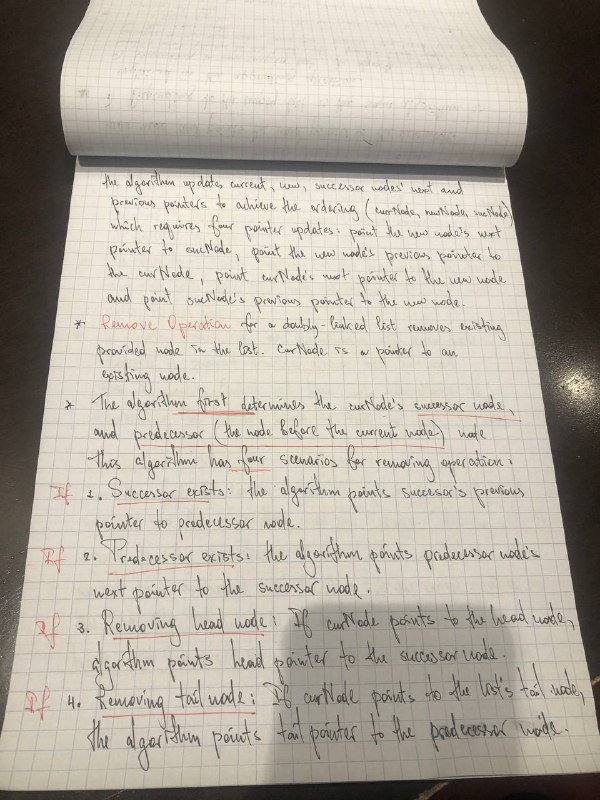 the algorithm updates current, new, successor nodes' next and
previous pointers to achieve the ordering (curNode, newNode, sucNode)
which requires four pointer updates: point the new node's next
pointer to sucNode, point the new node's previous pointer to
the curNode, point curNode's next pointer to the new node
and point sucNode's previous pointer to the new node.
* Remove Operation for a doubly-linked list removes existing
provided node in the list. curNode is a pointer to an
existing node.
* The algorithm first determines the curNode's successor node,
and predecessor (the node before the current node) node
This algorithm has four scenarios for removing operation:
If 1. Successor exists: the algorithm points succesor's previous
pointer to predecessor node.
If 2. Predecessor exists: the algorithm points predecessor node's
next pointer to the successor node.
If 3. Removing head node: If curNode points to the head node,
algorithm points head pointer to the successor node.
If 4. Removing tail node: If curNode points to the list's tail node,
the algorithm points tail pointer to the predecessor node.